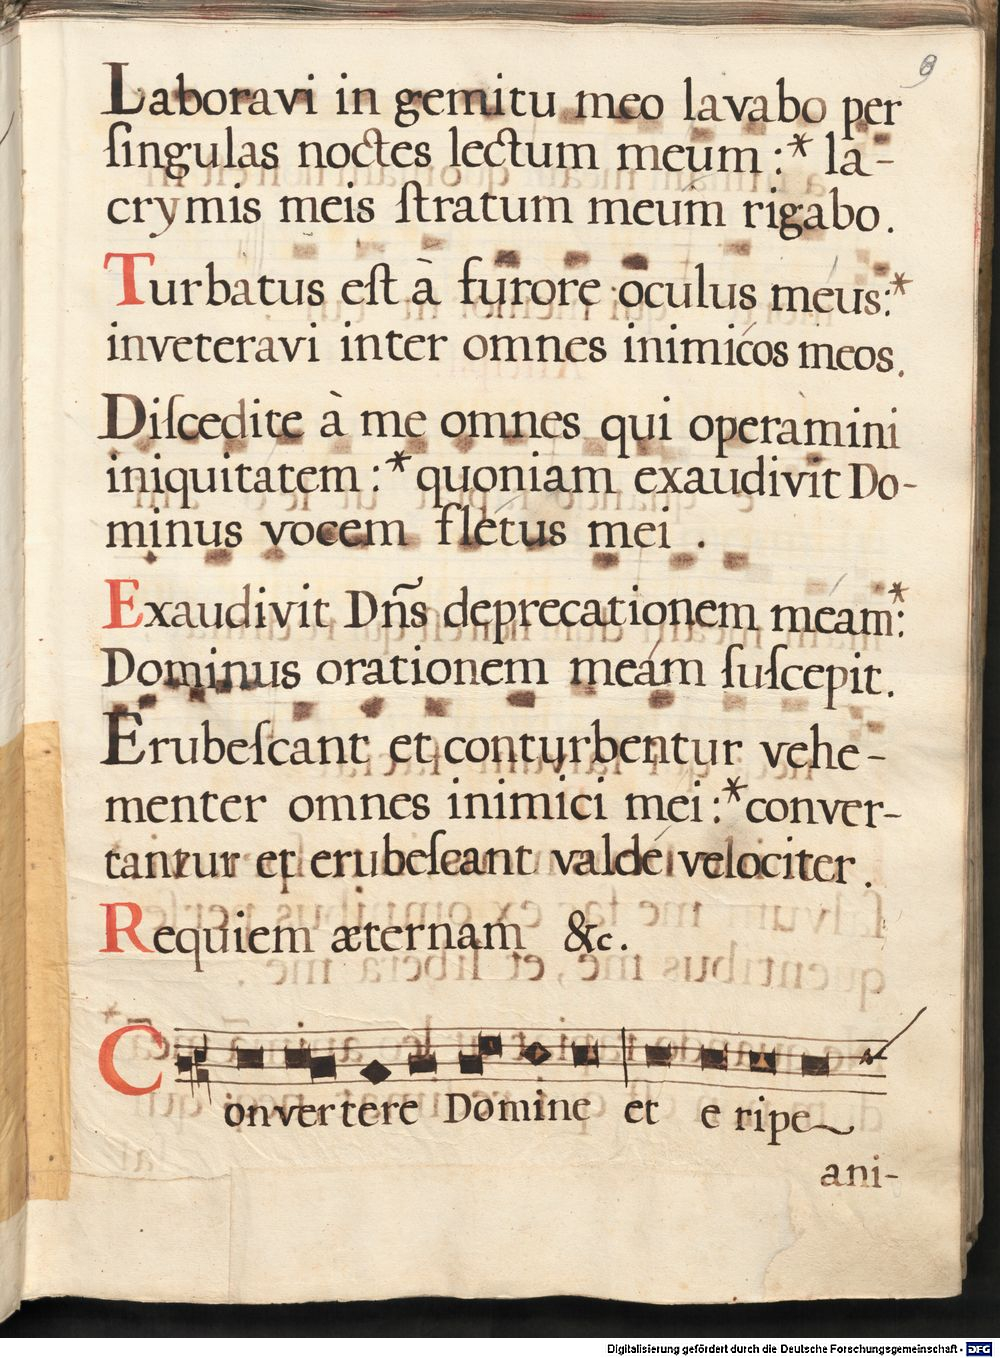 8
Laboravi in gemitu meo lavabo per
ſingulas noctes lectum meum :* la-
crymis meis ſtratum meum rigabo.
Turbatus eſt à furore oculus méus:*
inveteravi inter omnes inimicos meos.
Diſcedite à me omnes qui operamini
iniquitatem :* quoniam exaudivit Do-
minus vocem flétus mei .
Exaudivit Dn̄s deprecationem méam:*
Dominus orationem meám ſuſcepit.
Erubeſcant et conturbentur vehe-
menter omnes inimici mei :* conver-
tantur et erubeſcant valdé velociter.
Requiem æternam &c.
Convertere Domine et eripe
ani-
Digitalisierung gefördert durch die Deutsche Forschungsgemeinschaft - DFG